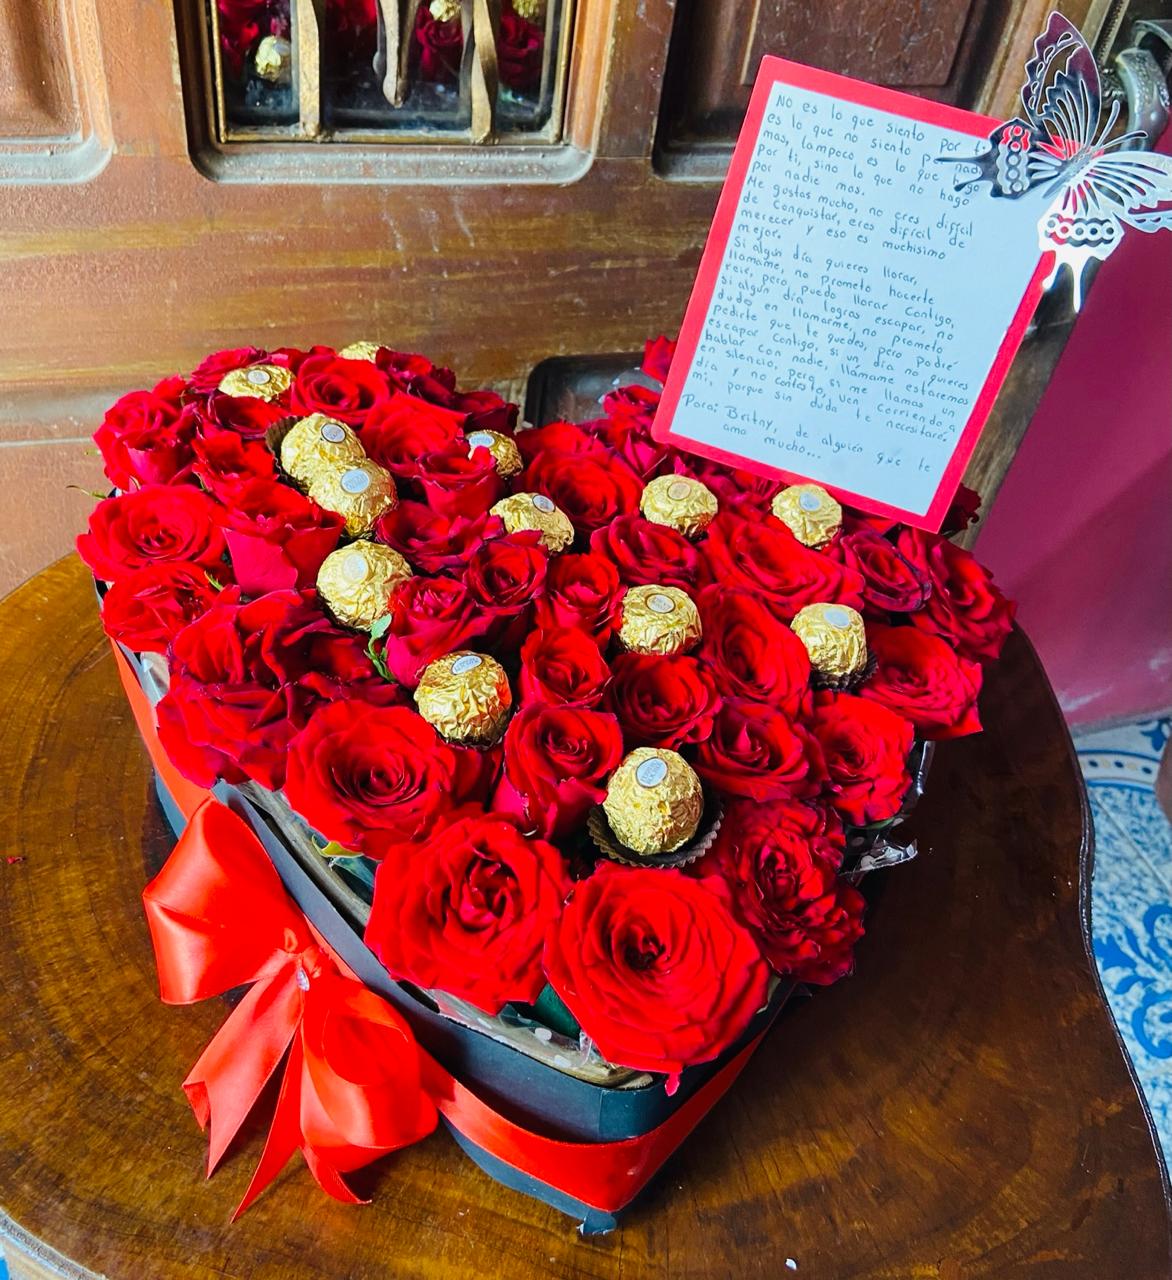 No es lo que siento por ti
es lo que no siento por nadie
mas, tampoco es lo que hago
por ti, sino lo que no hago
por nadie mas.
Me gustas mucho, no eres difícil
de conquistar, eres difícil de
merecer y eso es muchísimo
mejor.
Si algún día quieres llorar,
llámame, no prometo hacerte
reir, pero puedo llorar contigo,
si algún día logras escapar, no
dudes en llamarme, no prometo
pedirte que te quedes, pero podré
escapar contigo, si un día no quieres
hablar con nadie, llámame estaremos
en silencio, pero si me llamas un
día y no contesto, ven corriendo a
mi, porque sin duda te necesitaré.
Para: Britny, de alguien que te
ama mucho...